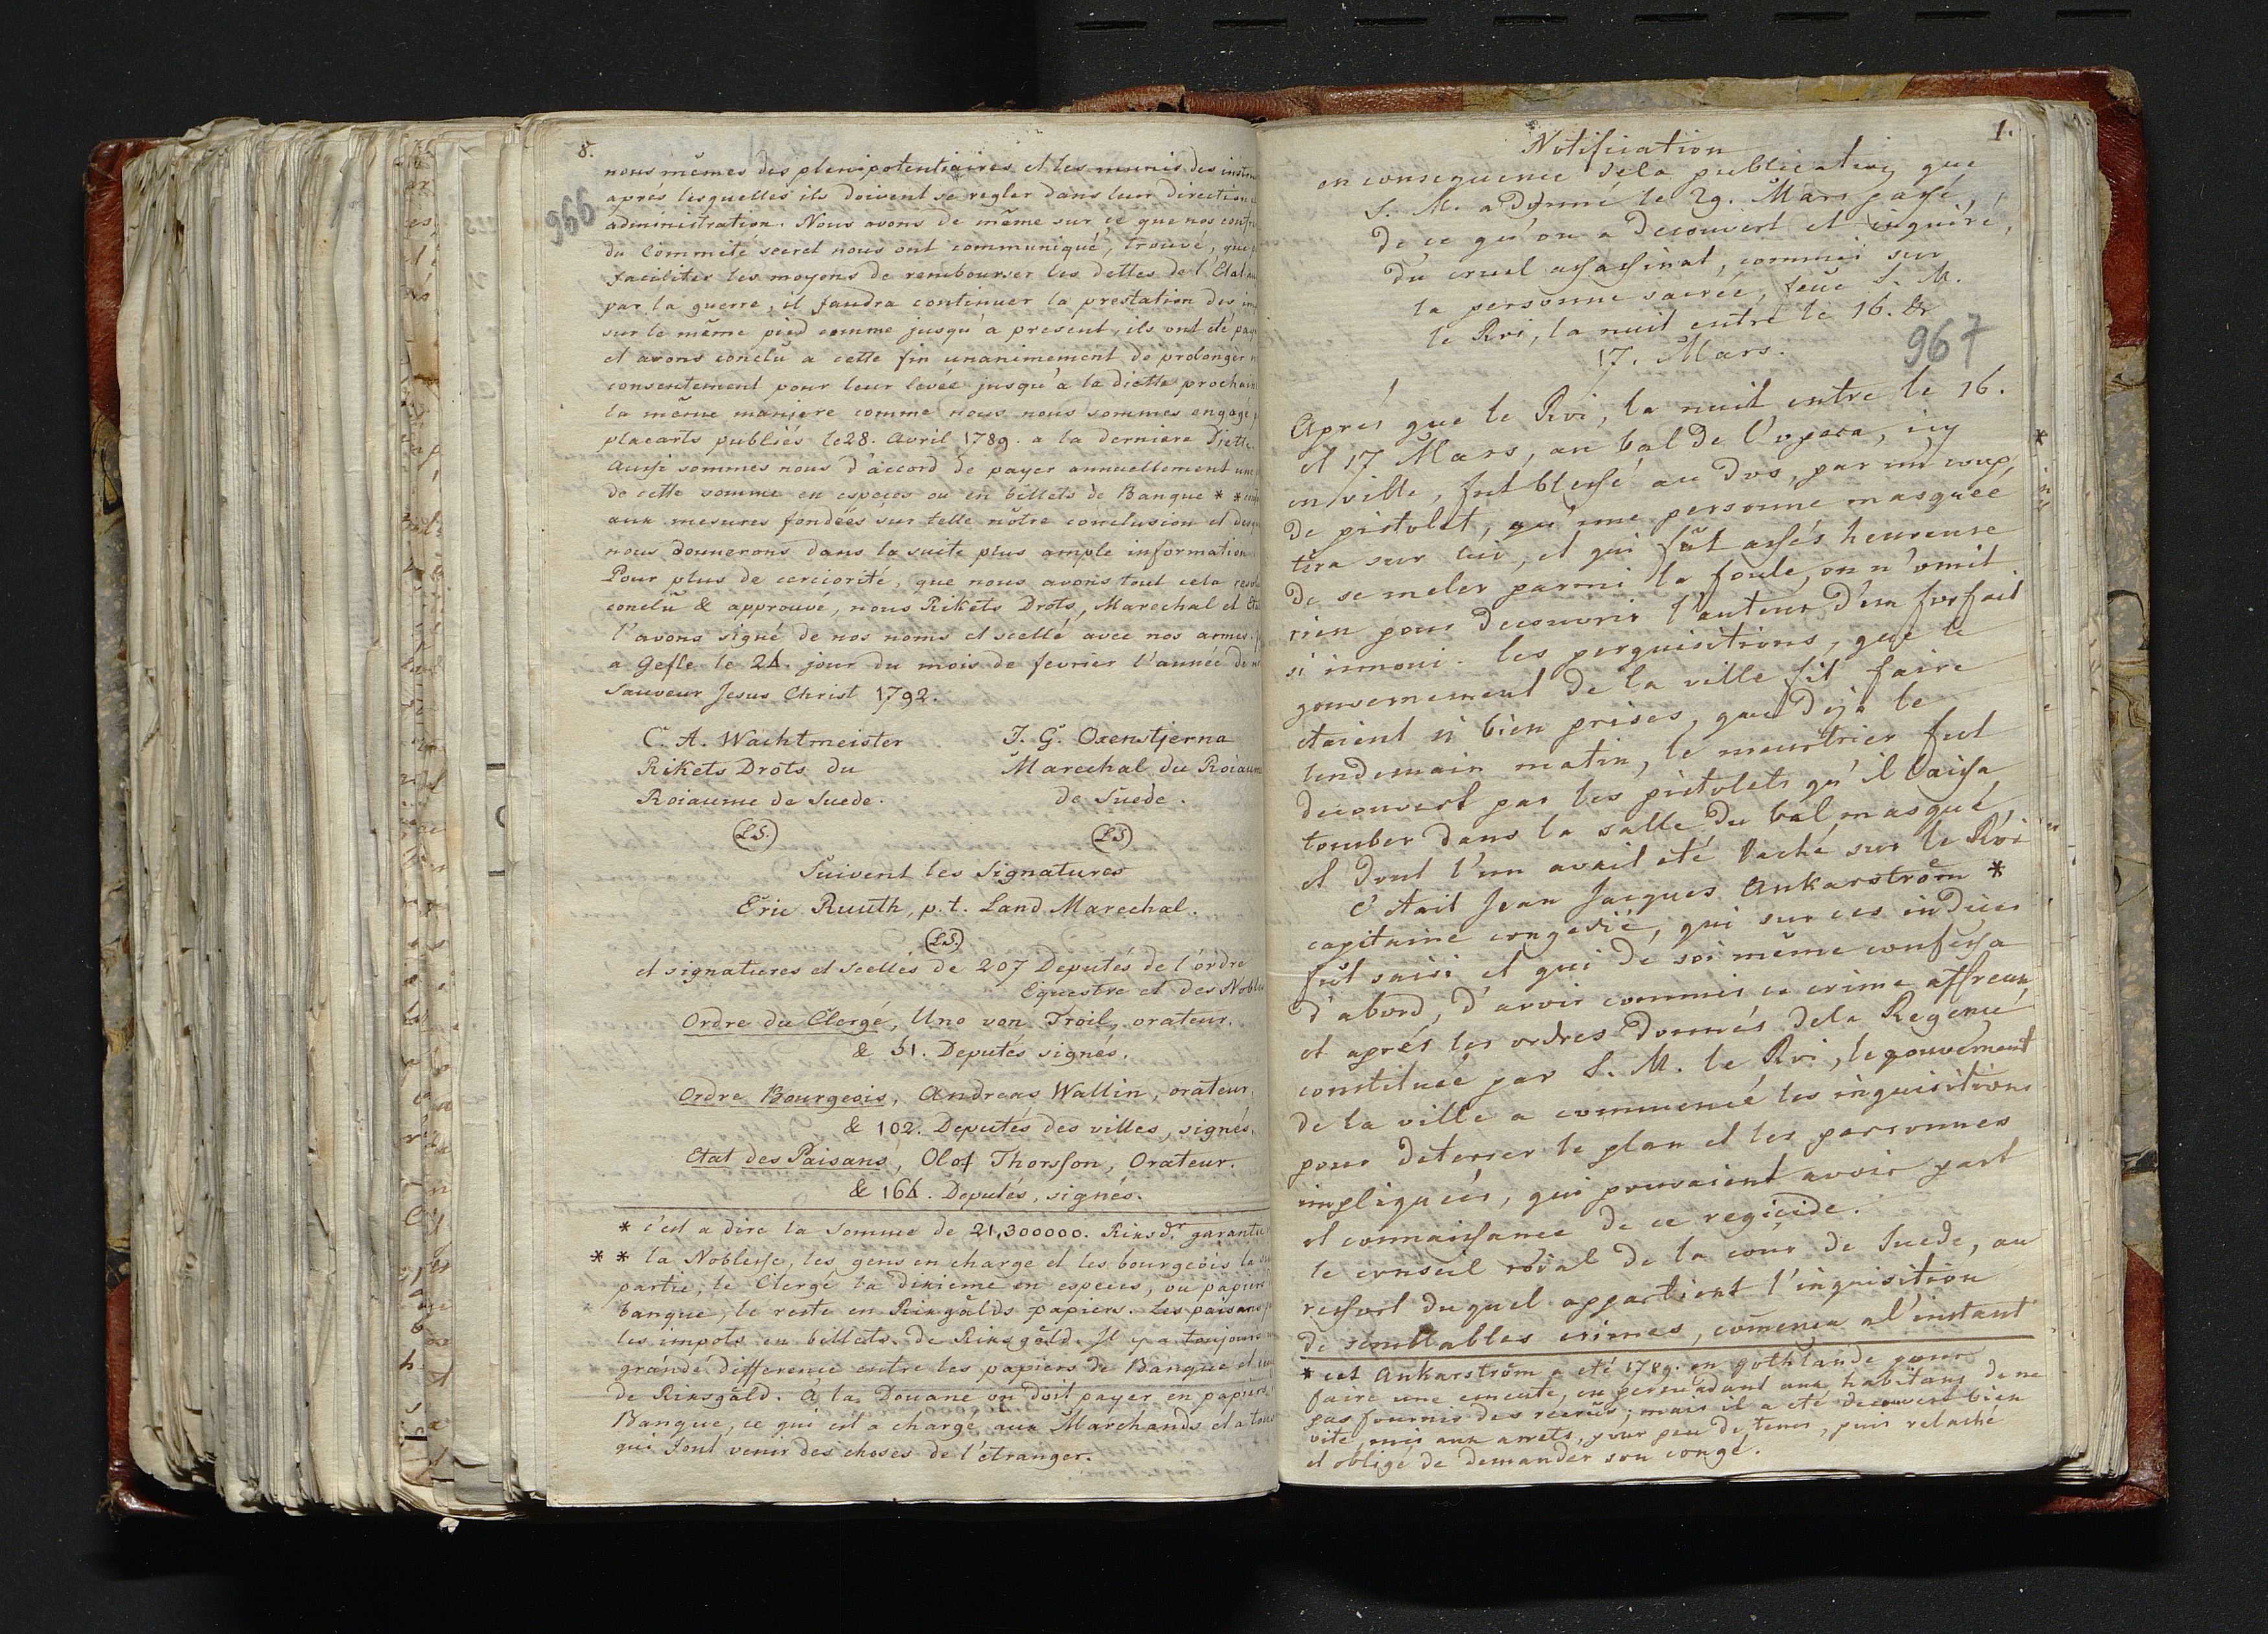 8.
966
nous mêmes des plenipotentiaires et les munis des
aprés lesquelles ils doivent se regler dans leur direction
administration. Nous avons de même sur ce que nos
du Committé secret nous ont communiqué, trouvé, que
faciliter les moyens de rembourser les dettes de l'Etat
par la guerre, il faudra continuer la prestation des
sur le même pied comme jusqu'a present, ils ont été
et avons conclû a cette fin unanimement de prolonger
consentement pour leur levée jusqu'à la diette
la même maniere comme nous nous sommes engagé
placarts publiés le 28. Avril 1789. a la derniere Diette
Aussi sommes nous d'accord de payer annuellement
de cette somme en especes ou en billets de Banque * *
aux mesures fondées sur telle nôtre conclusion et
nous donnerons dans la suite plus ample information
Pour plus de cerciorité, que nous avons tout cela
conclû & approuvé, nous Rikets Drots, Marechal et
l'avons signé de nos noms et scellé avec nos armes.
a Gefle le 24. jour du mois de fevrier l'année de
Sauveur Jesus Christ 1792.
C. A. Wachtmeister J. G. Oxenstjerna
Rikets Drots du Marechal du
Roiaume de Suede. de Suede.
L.S. L.S
Suivent les Signatures
Eric Ruuth, p.t. Land Marechal.
L.S.
et signatures et scellés de 207 Deputés de l'ordre
Equestre et des
Ordre du Clergé, Uno von Troil, orateur.
& 51. Deputés signés.
Ordre Bourgeois, Andreas Wallin, orateur,
& 102. Deputés des villes, signés.
Etat des Paisans, Olof Thorsson, Orateur.
& 164. Deputés, signés.
* c'est a dire la somme de 21,300000. Riksdr.
* * la Noblesse, les gens en charge et les bourgeois la
partie, le Clergé la dixieme en especes, ou papiers
banque, le reste en Riksgälds papiers. Les paisans
les impots en billets de Riksgäld. Il y a toujours
grande difference entre les papiers de Banque et
de Riksgäld. A la Douane on doit payer en papiers
Banque, ce qui est a charge aux Marchands et a
qui font venir des choses de l'étranger.
1.
Notification
en consequence dela publication que
S. M. a donné le 29. Mars passé,
de ce qu'on a decouvert et inquiré,
du cruel assassinat, commis sur
la personne sacrée, feüe S. M.
le Roi, la nuit entre le 16. &
17. Mars.
967
Aprés que le Roi, la nuit entre le 16.
et 17 Mars, au bal de l'opera, icy
en ville, fut blessé au dos, par un coup
de pistolet, qu'une personne masquée
tira sur lui, et qui fût assés heureuse
de se meler parmi la foule, on n'omit
rien pour decouvrir l'auteur d'un forfait
si innoui. les perquisitions, que le
gouvernement de la ville fit faire
etaient si bien prises, que deja le
lendemain matin, le meurtrier fut
decouvert par les pistolets qu'il laissa
tomber dans la salle du bal masqué,
et dont l'un avait eté laché sur le Roi
c'etait Jean Jacques Ankarström *
capitaine congedié, qui sur ces indices
fût saisi et qui de soi même confessa
d'abord, d'avoir commis ce crime affreux
et aprés les ordres donnés dela Regence
constituée par S. M. le Roi, le gouvernement
de la ville a commencé les inquisitions
pour deterrer le plan et les personnes
impliquées, qui pouvaient avoir part
et connaissance de ce regicide.
le conseil roial de la cour de Suede, au
ressort duquel appartient l'inquisition
de semblables crimes, comença al'instant
* cet Ankarström a eté 1789. en gothlande pour
faire une emeute, en persuadant aux habitans de ne
pas fournir des récrus; mais il a eté decouvert bien
vite, mis aux arrets, pour peu de tems, puis relaché
et obligé de demander son congé.